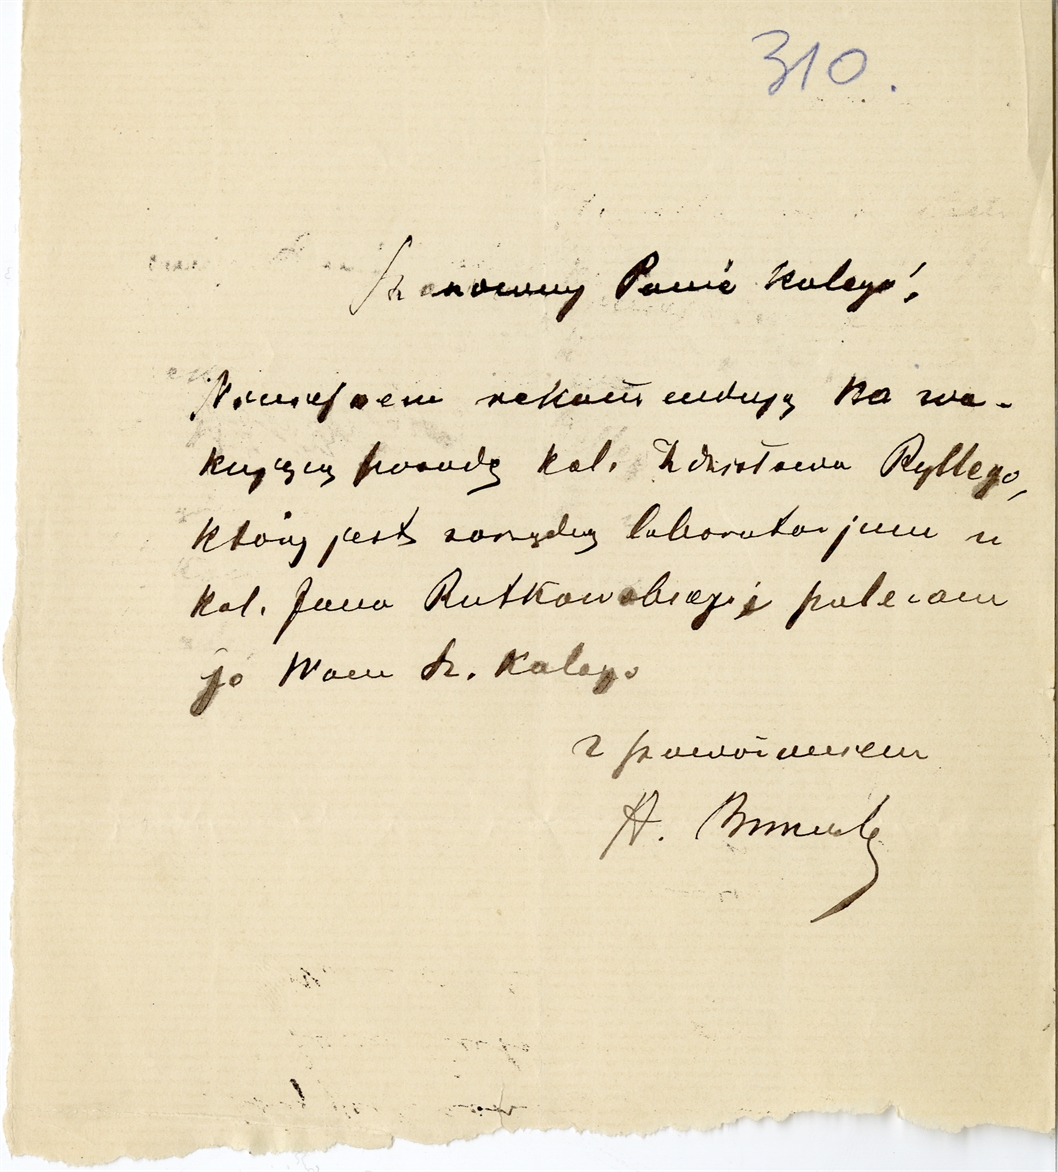 310.
Szanowny Panie Kolego!
Niniejszem rekomenduję na wa-
kującą posadę kol. Zdzisława Ryllego,
który jest zarządcą laboratorjum u
kol. Jana Rutkowskiego i polecam
go Wam Sz. Kolego
z poważaniem
H.